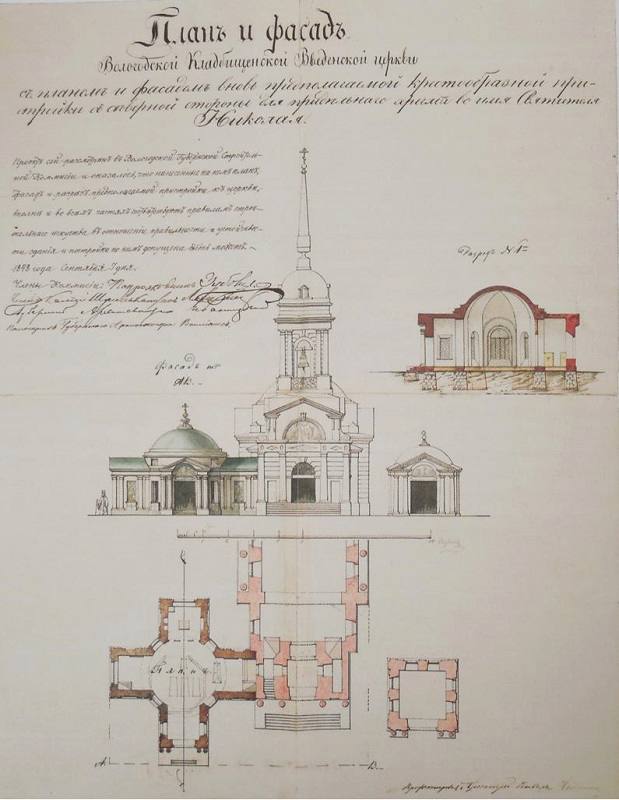 Планъ и фасадъ
Вологодской Кладбищенской Введенской церкви
съ планомъ и фасадомъ вновь предполагаемой крестообразной при-
стройки съ северной стороны для придельнаго храма во имя Святителя
Николая.
Проэктъ сей разсмотренъ въ Вологодской Губернской Строитель-
ной Коммисіи и оказалось, что нанесенные на немъ планъ,
фасадъ и разрезъ предполагаемой пристройки къ церкви,
вполне и во всемъ частяхъ правиламъ строи-
тельнаго искуства въ отношеніи правильности и устойчиво-
сти зданія и постройка по нимъ допущена быть можетъ.
1848 года Сентября 7 дня.
Члены Коммисіи:
Губернскій Архитекторъ
Разрезъ
Фасадъ по
АВ.
Планъ
А.
В.